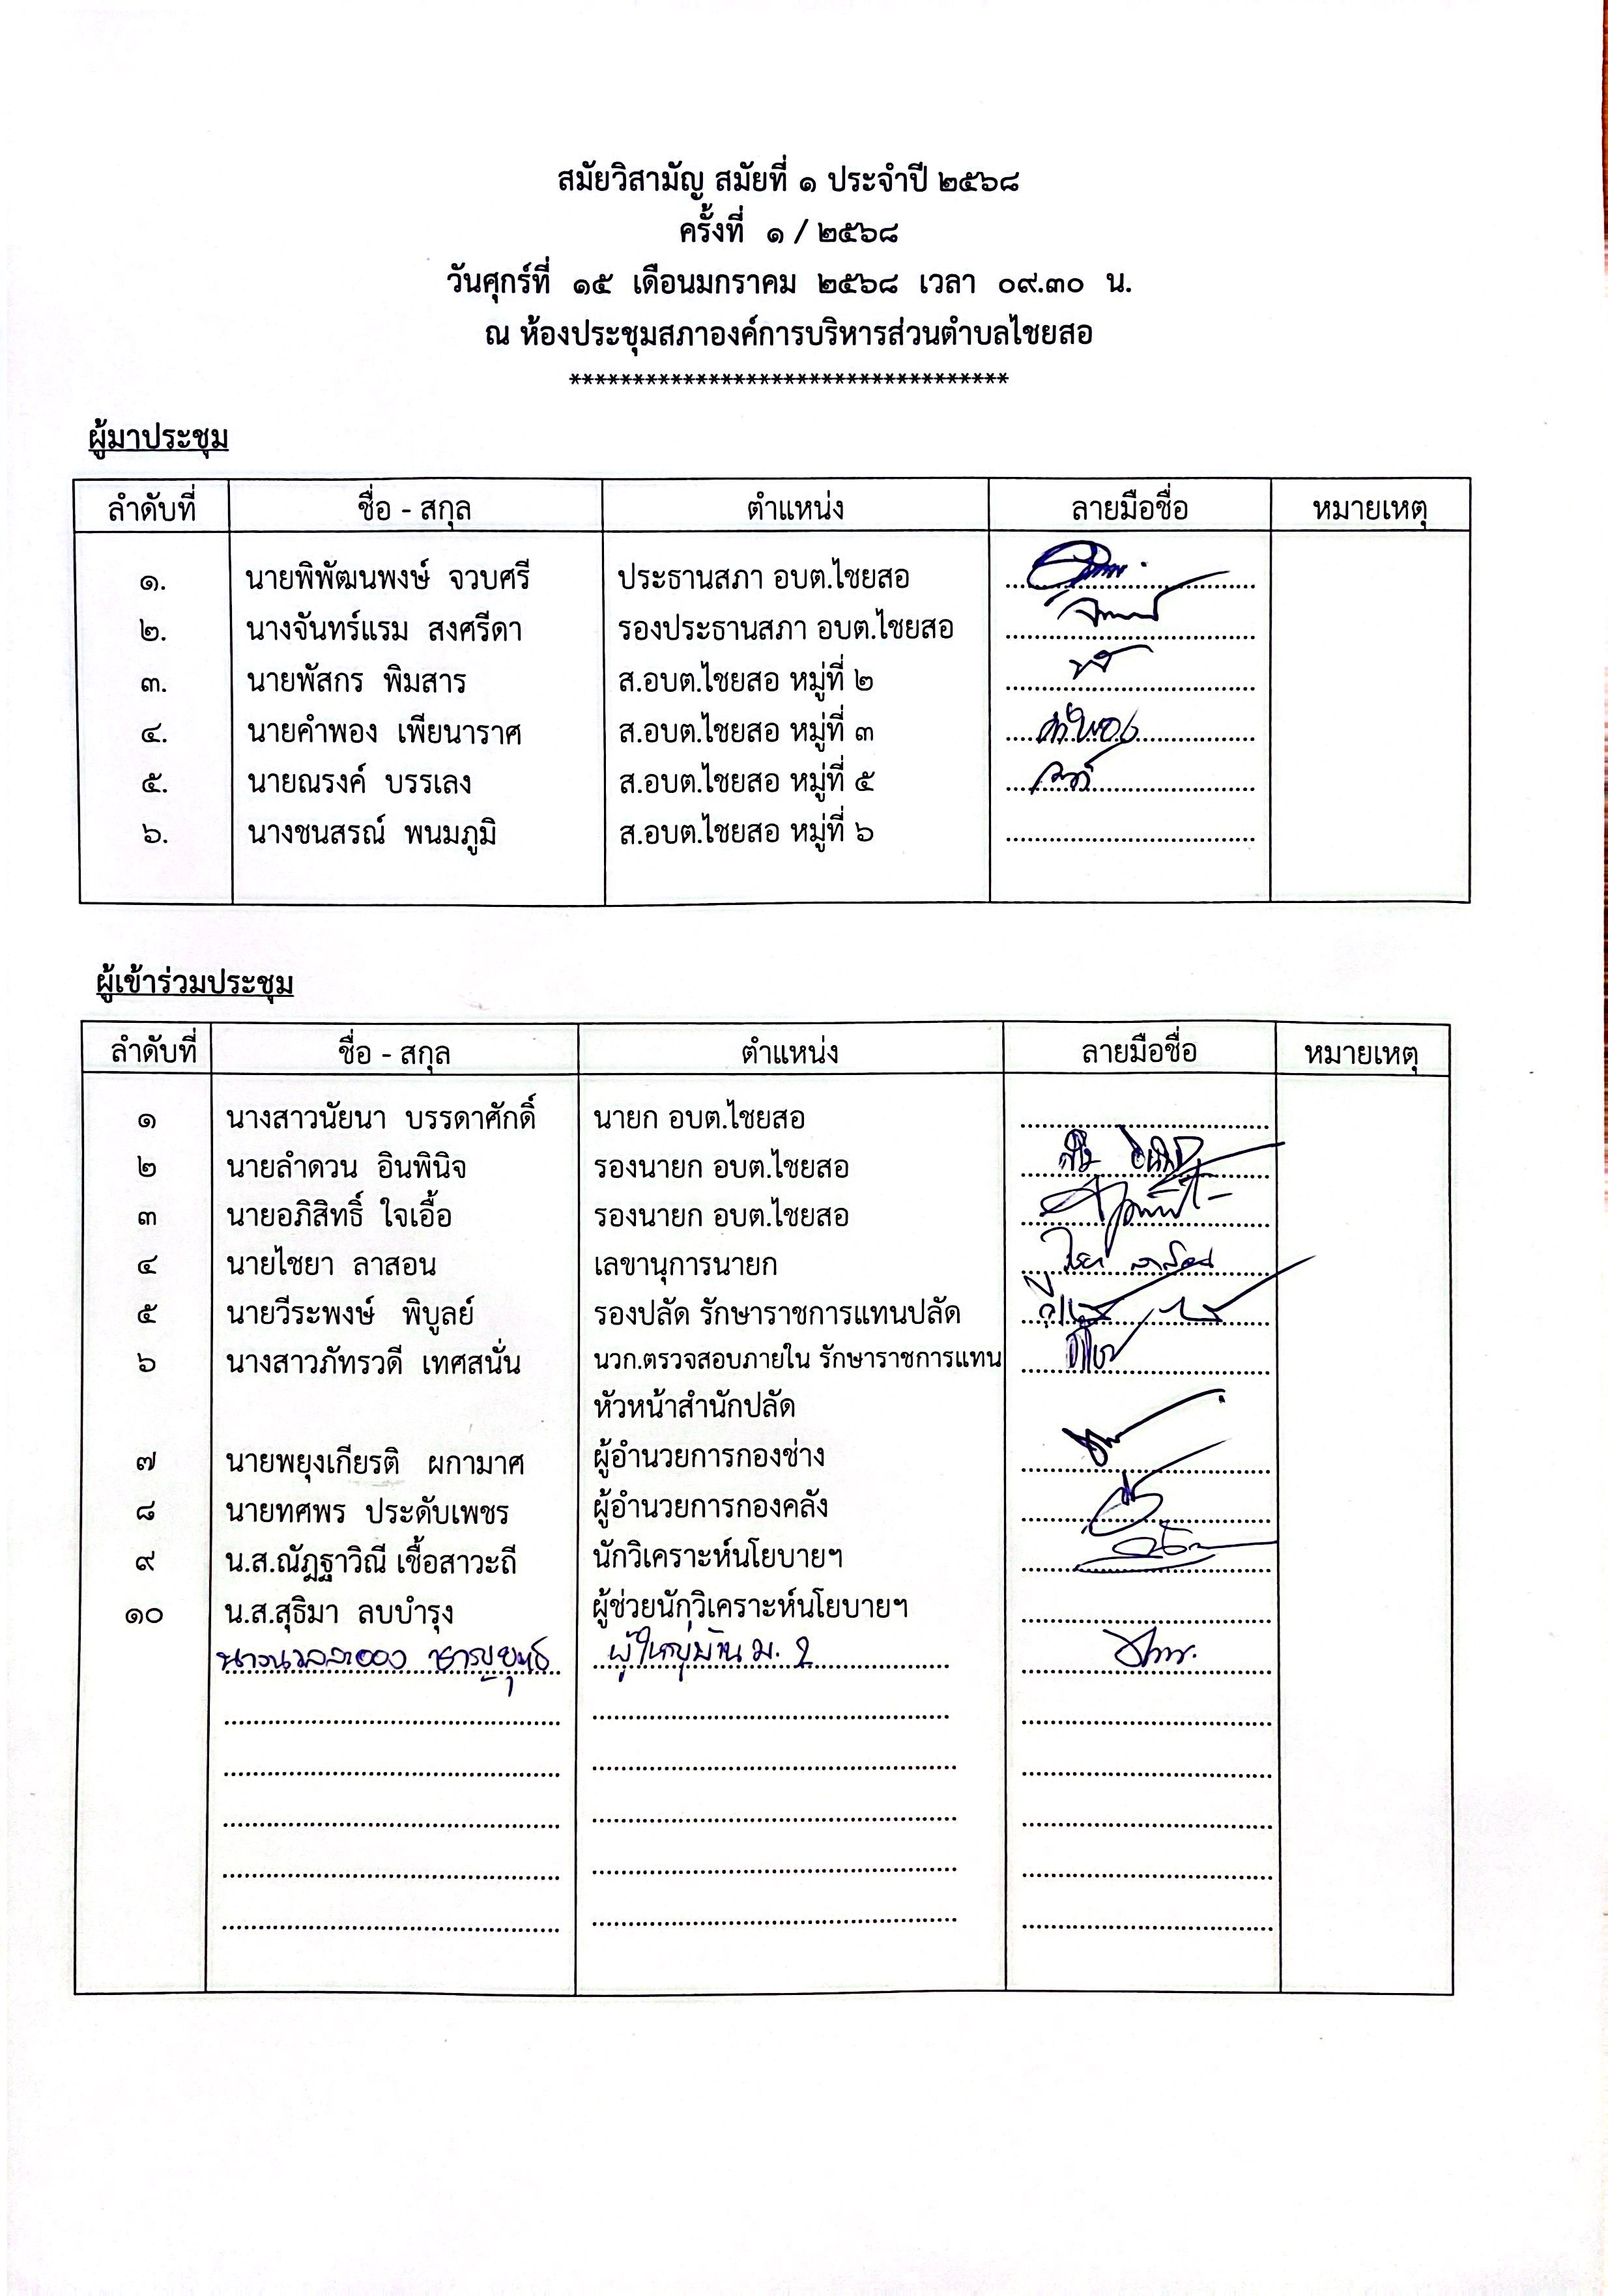 สมัยวิสามัญ สมัยที่ ๑ ประจำปี ๒๕๖๘
ครั้งที่ ๑ / ๒๕๖๘
วันศุกร์ที่ ๑๕ เดือนมกราคม ๒๕๖๘ เวลา ๐๙.๓๐ น.
ณ ห้องประชุมสภาองค์การบริหารส่วนตำบลไชยสอ
***********************************
ผู้มาประชุม
ลำดับที่ ชื่อ - สกุล ตำแหน่ง ลายมือชื่อ หมายเหตุ
๑. นายพิพัฒนพงษ์ จวบศรี ประธานสภา อบต.ไชยสอ
๒. นางจันทร์แรม สงศรีดา รองประธานสภา อบต.ไชยสอ
๓. นายพัสกร พิมสาร ส.อบต.ไชยสอ หมู่ที่ ๒
๔. นายคำพอง เพียนาราศ ส.อบต.ไชยสอ หมู่ที่ ๓ คำพอง
๕. นายณรงค์ บรรเลง ส.อบต.ไชยสอ หมู่ที่ ๕
๖. นางชนสรณ์ พนมภูมิ ส.อบต.ไชยสอ หมู่ที่ ๖
ผู้เข้าร่วมประชุม
ลำดับที่ ชื่อ - สกุล ตำแหน่ง ลายมือชื่อ หมายเหตุ
๑ นางสาวนัยนา บรรดาศักดิ์ นายก อบต.ไชยสอ
๒ นายลำดวน อินพินิจ รองนายก อบต.ไชยสอ
๓ นายอภิสิทธิ์ ใจเอื้อ รองนายก อบต.ไชยสอ
๔ นายไชยา ลาสอน เลขานุการนายก ไชยา ลาสอน
๕ นายวีระพงษ์ พิบูลย์ รองปลัด รักษาราชการแทนปลัด
๖ นางสาวภัทรวดี เทศสนั่น นวก.ตรวจสอบภายใน รักษาราชการแทน
หัวหน้าสำนักปลัด
๗ นายพยุงเกียรติ ผกามาศ ผู้อำนวยการกองช่าง
๘ นายทศพร ประดับเพชร ผู้อำนวยการกองคลัง
๙ น.ส.ณัฎฐาวิณี เชื้อสาวะถี นักวิเคราะห์นโยบายฯ
๑๐ น.ส.สุธิมา ลบบำรุง ผู้ช่วยนักวิเคราะห์นโยบายฯ
นางนวลละออง ชาญยุทธ ผู้ใหญ่บ้าน ม. 2